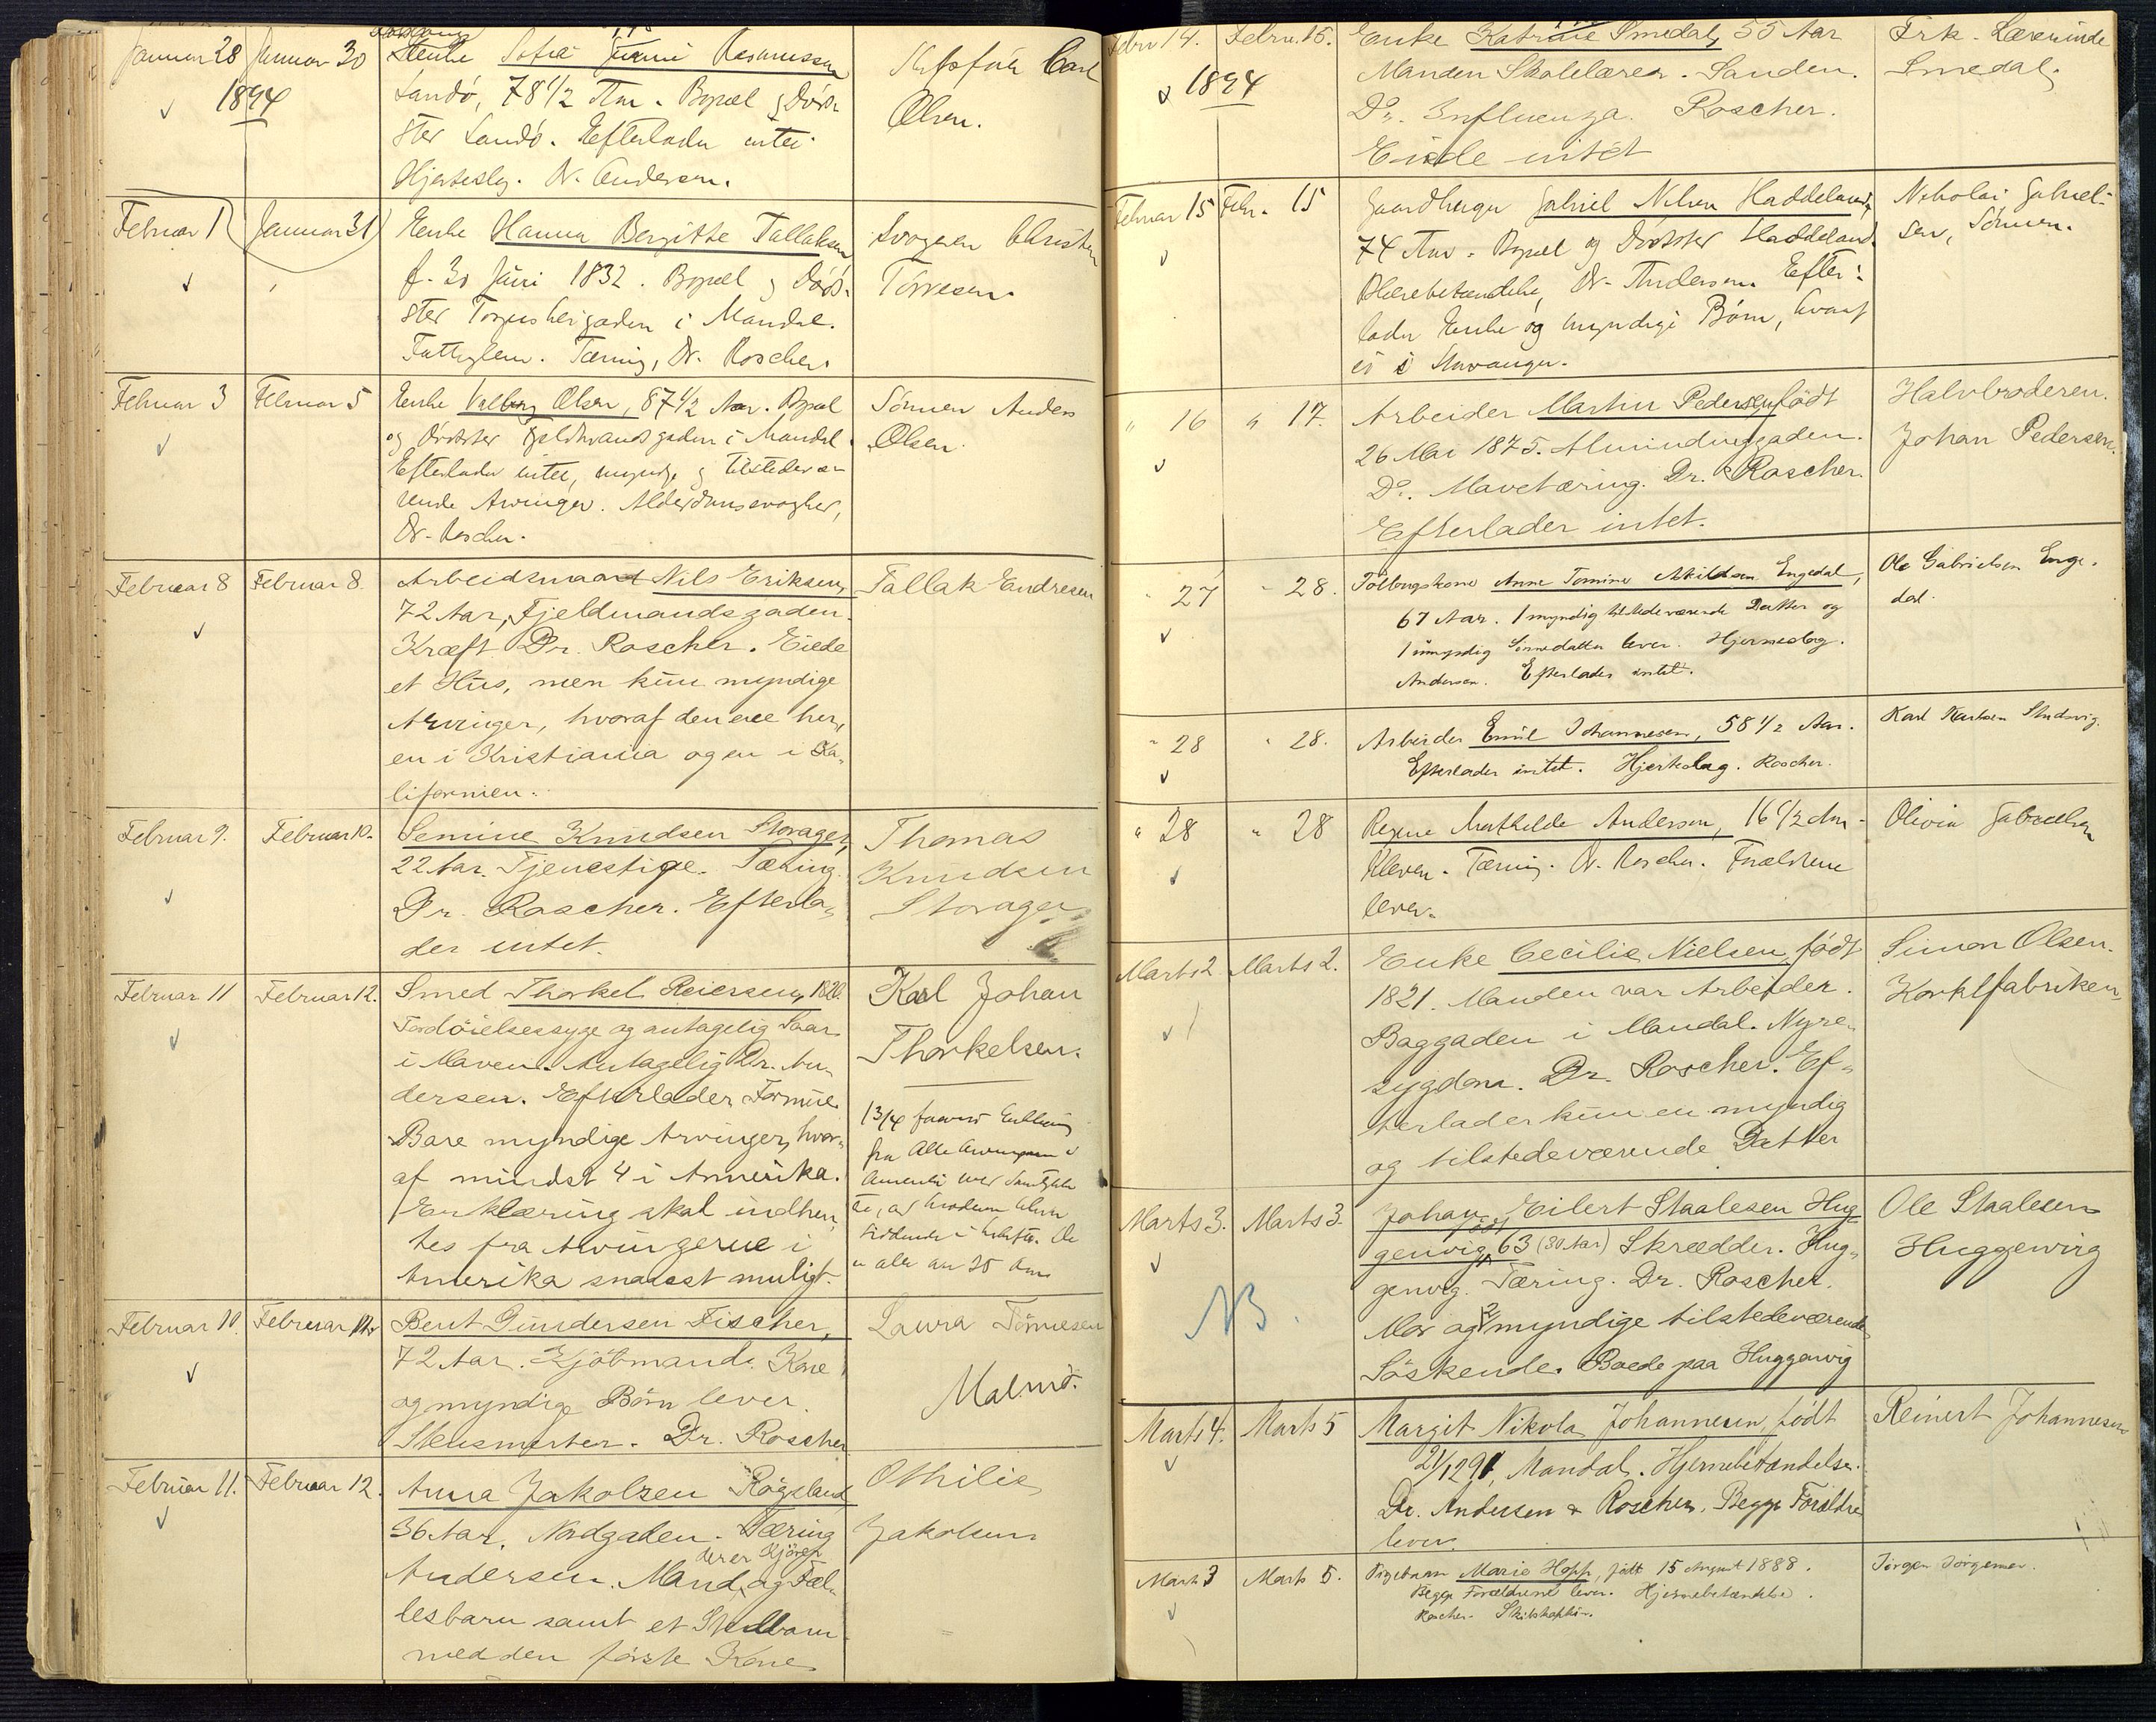 Januar 28 Januar 30
1894
Enke Sofie Rasmussen
Landö, 78 1/2 Aar. Bopæl og Döds-
sted Landö. Efterlader intet.
Hjertesyg. Dr. Andersen.
Carl
Olsen.
Februar 1 Januar 31
Enke Hanna Bergitte Tallaksen
f. 30 Juni 1832. Bopæl og Döds-
sted i Mandal.
Fattiglem. Tæring, Dr. Roscher.
Svogeren Christen
Törresen.
Februar 3 Februar 5
Enke Valborg Olsen, 87 1/2 Aar. Bopæl
og Dödssted Fjeldmandsgaden i Mandal.
Efterlader intet, myndige og tilstedevæ-
rende Arvinger. Alderdomssvaghed,
Dr. Roscher.
Sönnen Anders
Olsen.
Februar 8 Februar 8
Arbeidsmand Nils Eriksen,
72 Aar, Fjeldmandsgaden.
Kræft Dr. Roscher. Eiede
et Hus, men kun myndige
Arvinger, hvoraf den ene her,
en i Kristiania og en i Ka-
lifornien.
Tallak Endresen
Februar 9. Februar 10.
Semine Knudsen Storager,
22 Aar. Tjenestpige. Tæring.
Dr. Roscher. Efterla-
der intet.
Thomas
Knudsen
Storager
Februar 11 Februar 12.
Smed Thorkel Reiersen, 1820.
Fordöielsessyge og antagelig Saar
i Maven. Antagelig Dr. An-
dersen. Efterlader Formue.
Bare myndige Arvinger, hvor-
af mindst 4 i Amerika.
Erklæring skal indhen-
tes fra Arvingerne i
Amerika snarest muligt.
Karl Johan
Thorkelsen.
13/4
fra Alle Arvingerne i
Amerika
alle
Februar 10. Februar
Bent Gundersen Fischer,
72 Aar. Kjöbmand. Kone
og myndige Börn lever.
Dr. Roscher
Laura Tönnesen
Malmö.
Februar 11. Februar 12.
Anna Jakobsen Rögeland,
36 Aar. Nordgaden. Tæring
Andersen. Mand, der er og Fæl-
lesbarn samt et Stedbarn
med den förste Kone
Othilie
Jakobsen
Febr 14. Febru. 15.
1894
Enke Katrine Smedal, 55 Aar
Manden Skolelærer. Sanden.
Do. Influenza. Roscher.
Eiede intet
Frk. Lærerinde
Smedal.
Februar 15 Febr. 15
Gaardbruger Gabriel Nilsen Haddeland,
74 Aar. Bopæl og Dödssted Haddeland.
Blærebetændelse, Dr. Andersen. Efter-
lader Enke og myndige Börn, hvoraf
en i Stavanger.
Nikolai Gabriel-
sen, Sönnen.
" 16 " 17.
Arbeider Martin Pedersen, födt
26 Mai 1875. Almindinggaden.
Do. Mavetæring. Dr. Roscher.
Efterlader intet.
Halvbroderen.
Johan Pedersen.
" 27 " 28.
Anne Tomine Askildsen Engedal,
67 Aar. 1 myndig tilstedeværende Datter og
1 umyndig Sönnedatter lever. Hjerneslag.
Andersen. Efterlader intet.
Ole Gabrielsen Enge-
dal.
" 28 " 28.
Arbeider Emil Johannesen, 58 1/2 Aar.
Efterlader intet. Hjerteslag. Roscher.
Karl Karlsen Studsvig.
" 28 " 28
Regine Mathilde Andersen, 16 1/2 Aar.
Kleven. Tæring. Dr. Roscher. Forældrene
lever.
Olivia Gabrielsen
Marts 2 Marts 2.
Enke Cecilie Nielsen, födt
1821. Manden var Arbeider.
Baggaden i Mandal. Nyre-
sygdom. Dr. Roscher. Ef-
terlader kun en myndig
og tilstedeværende Datter
Simon Olsen.
Korkfabriken.
Marts 3. Marts 3.
Johan Eilert Staalesen Hug-
genvig, födt 63 (30 Aar) Skrædder. Hug-
genvig. Tæring. Dr. Roscher.
Mor og 2 myndige tilstedeværende
Söskende. Boede paa Huggenvig
NB.
Ole Staalesen
Huggenvig
Marts 4. Marts 5
Margit Nikola Johannesen, födt
21/12 91, Mandal. Hjernebetændelse.
Dr. Andersen & Roscher. Begge Forældre
lever.
Reinert Johannesen
Marts 3 Marts 5.
Pigebarn Marie Hopp, födt 15 August 1888.
Begge Forældrene lever. Hjernebetændelse.
Roscher.
Jörgen Jörgensen.